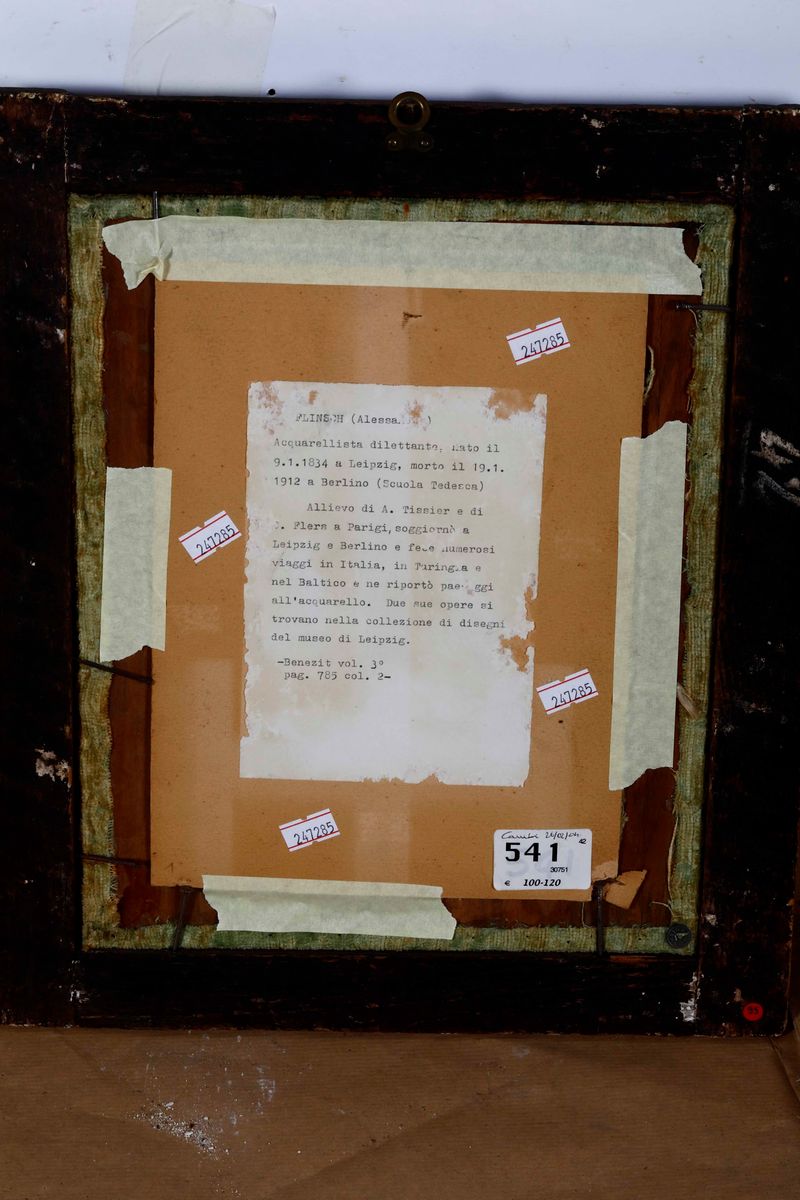 247285
FLINSCH (Alessa
Acquarellista dilettante, nato il
9.1.1834 a Leipzig, morto il 19.1.
1912 a Berlino (Scuola Tedesca)
Allievo di A. Tissier e di
Flers a Parigi, soggiornò a
Leipzig e Berlino e fece numerosi
viaggi in Italia, in Turingia e
nel Baltico e ne riportò paesaggi
all'acquarello. Due sue opere si
trovano nella collezione di disegni
del museo di Leipzig.
-Benezit vol. 3°
pag. 785 col. 2-
247285
247285
247285
42
541
30751
€ 100-120